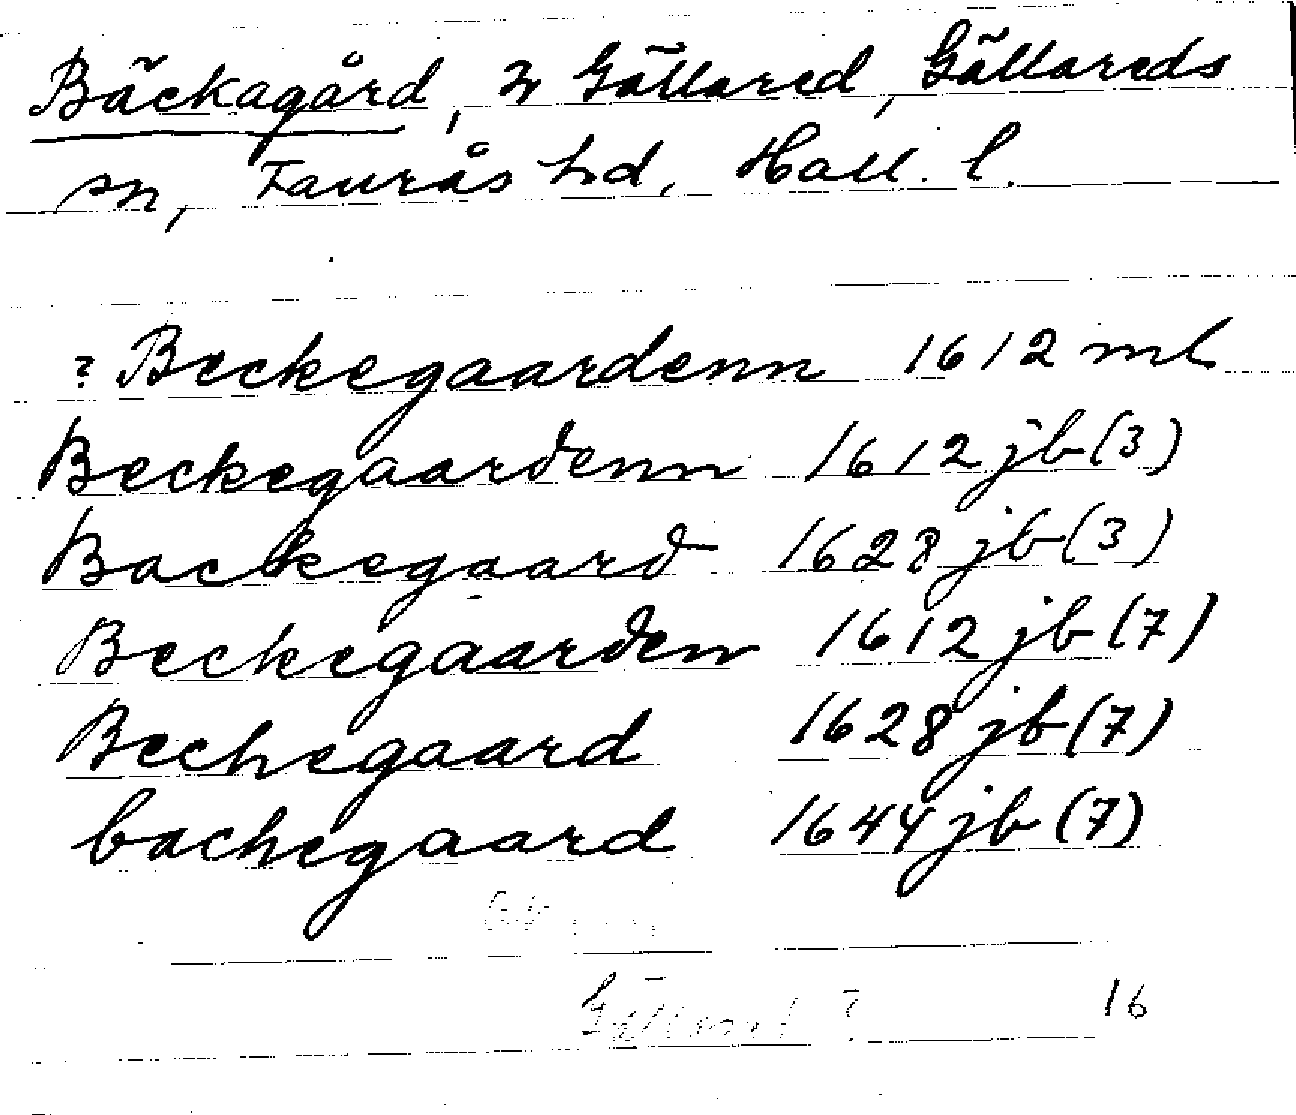 Bäckagård, 2/4 Gällared, Gällareds
sn, Faurås hd, Hall. l.
? Beckegaardenn 1612 ml
Beckegaardenn 1612 jb (3)
Backegaard 1628 jb (3)
Beckegaarden 1612 jb (7)
Bechegaard 1628 jb (7)
bachegaard 1644 jb (7)
Gällared ? 16